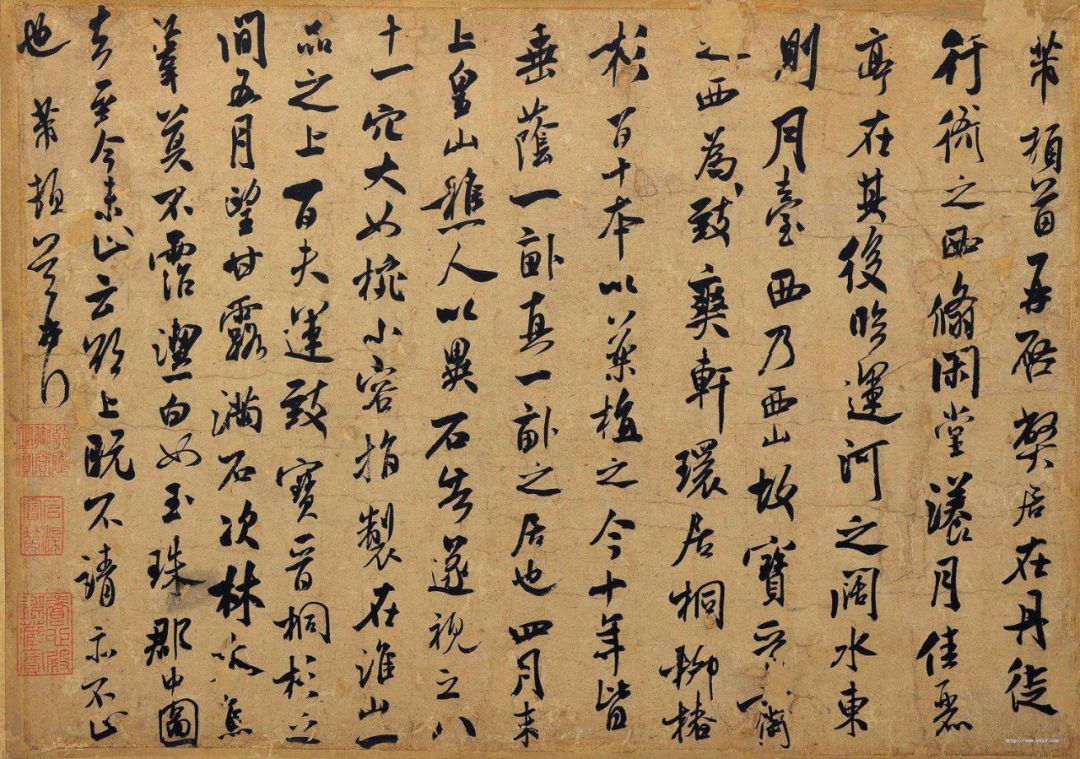 芾頓首再啓弊居在丹徒
行衙之西翛閑堂漾月佳麗
亭在其後臨運河之闊水東
則月臺西乃西山故寶晉齋
之西為致爽軒環居桐柳椿
杉百十本以藥植之今十年皆
垂蔭一畝真一畝之居也四月末
上皇山樵人以異石告遂視之八
十一穴大如椀小容指製在淮山一
品之上百夫運致寶晉桐杉之
間五月望甘露滿石次林木焉
莫不霑潔白如玉珠郡中圖
去至今未止云欲上既不請亦不止
也 芾頓首